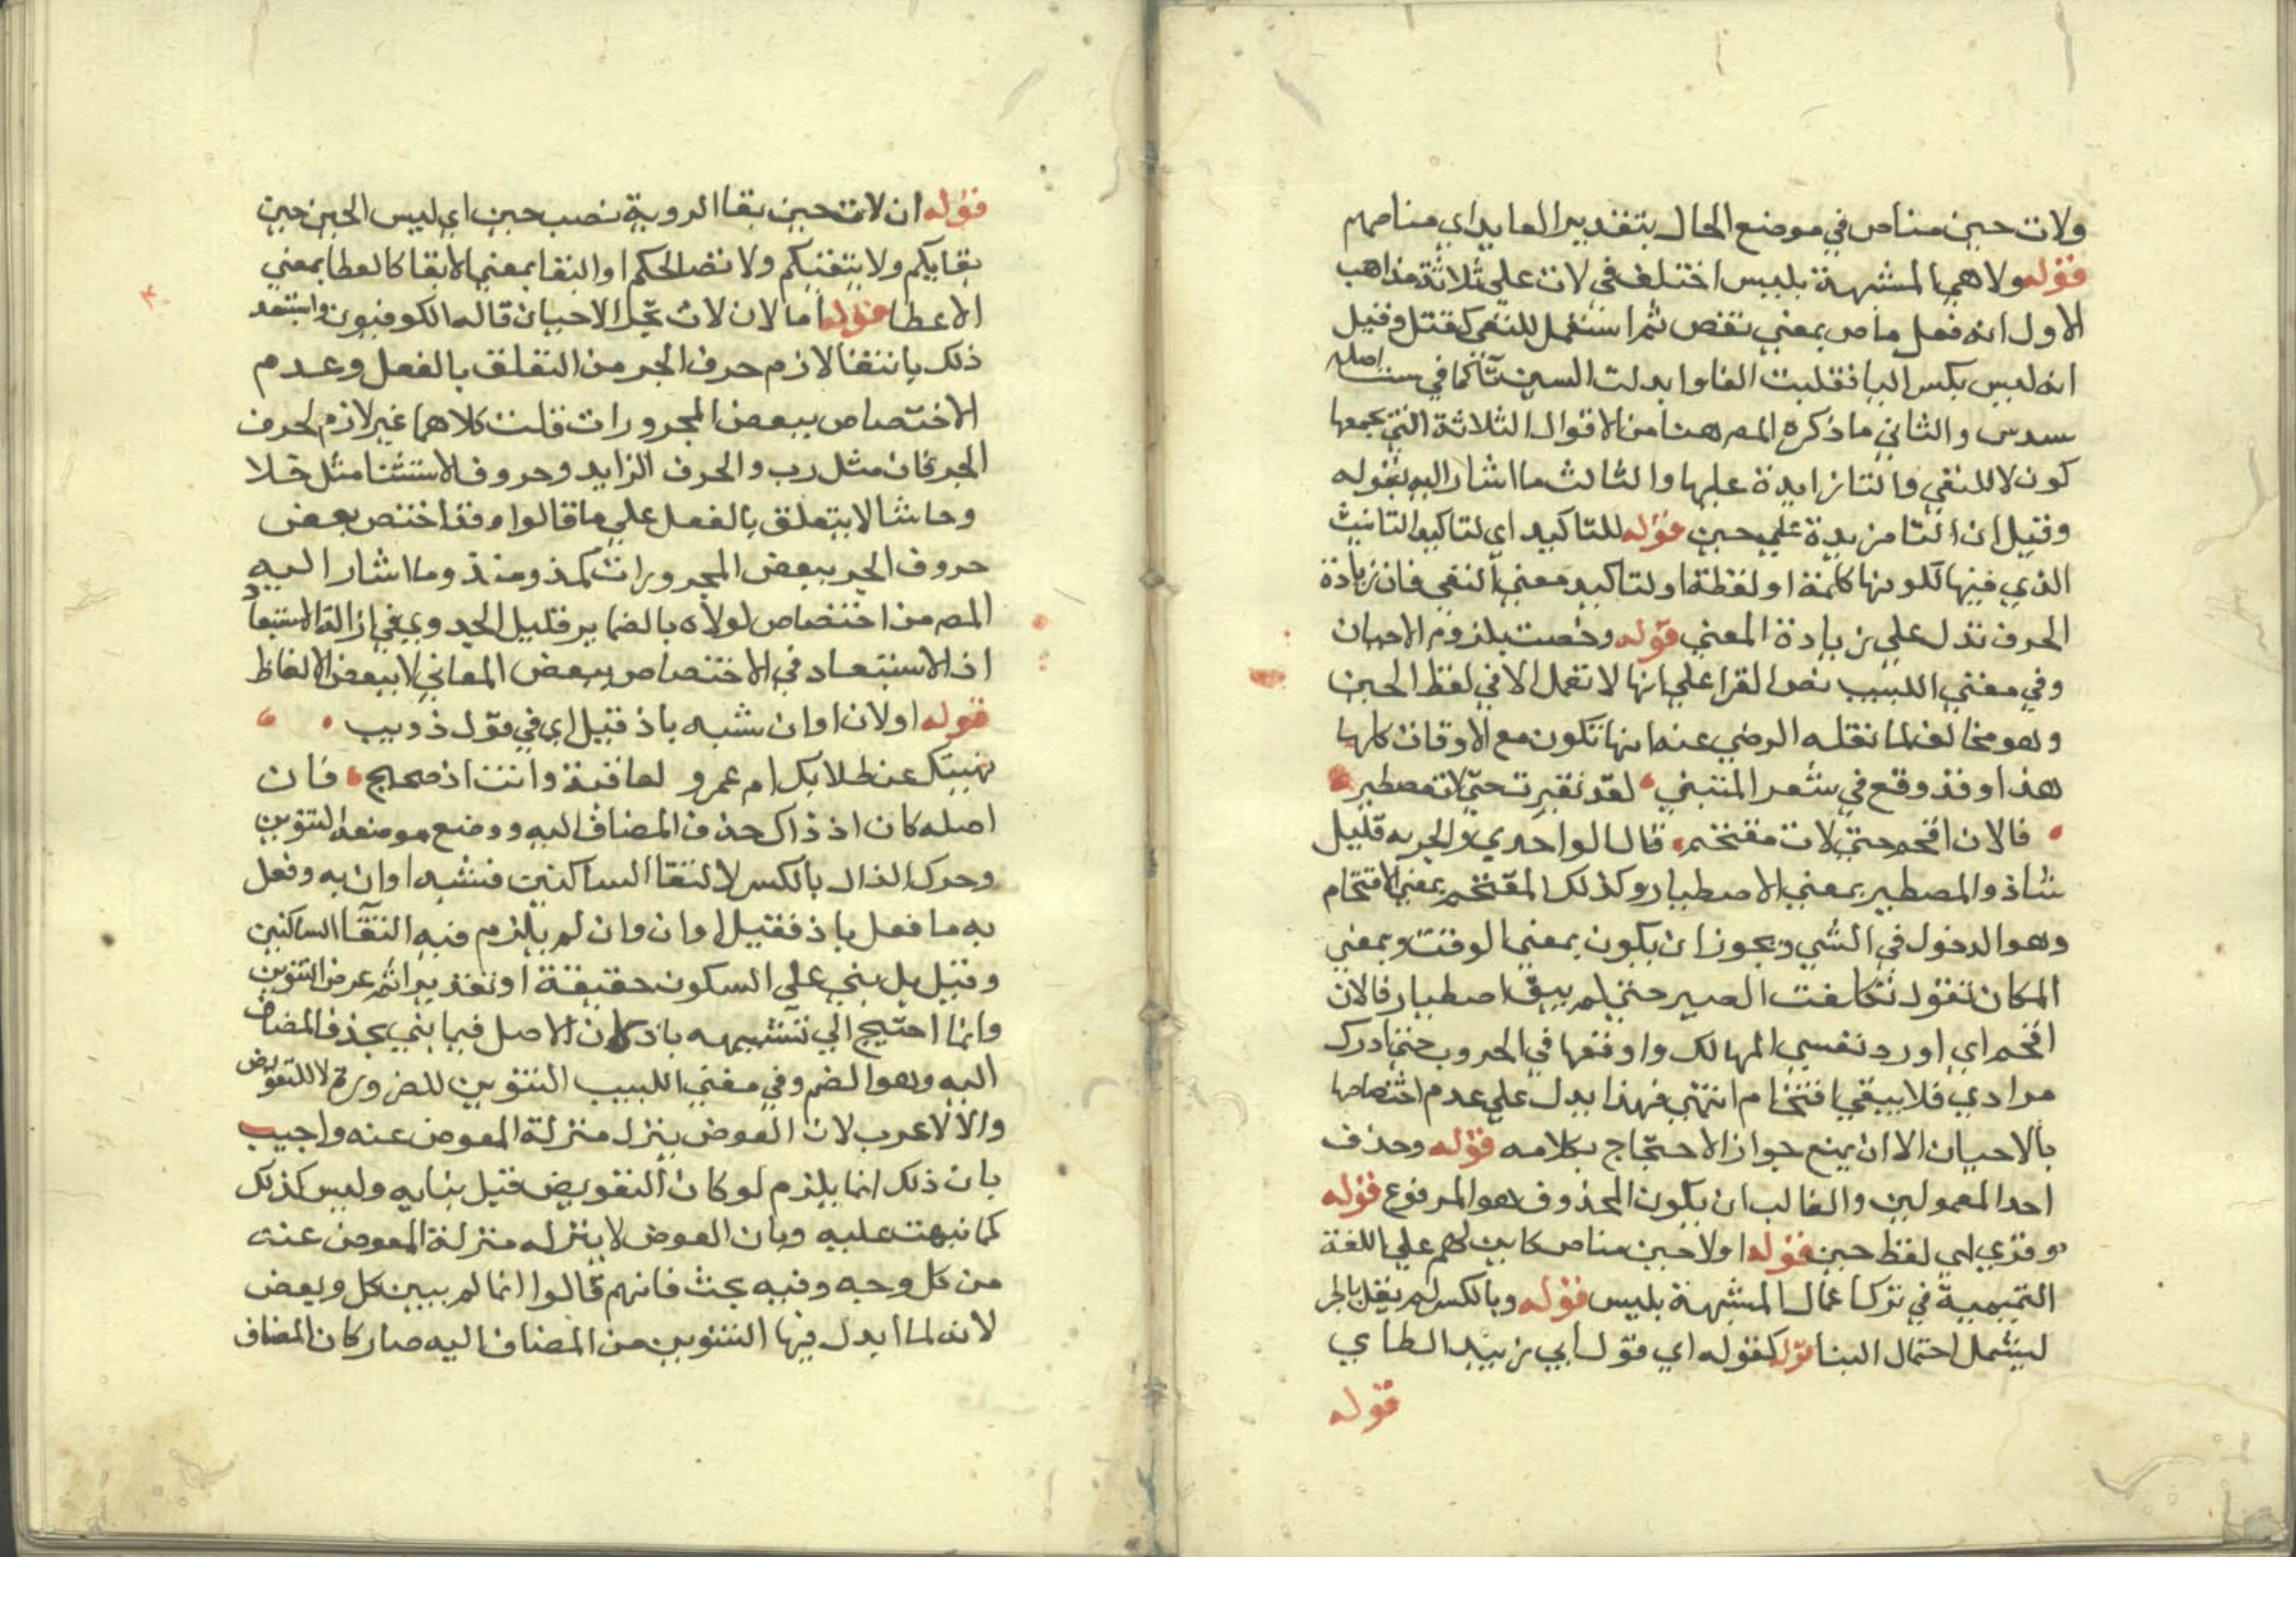 ولات حين مناص في موضع الحال بتقدير العايد اي مناصهم
قوله ولا هي المشبهة بليس اختلف في لات علي ثلاثة مذاهب
الاول انه فعل ماض بمعني نقص ثم استعمل للنفي كقتل وقيل
انه ليس بكسر اليا فقلبت الفا وابدلت السين تآ كما في ست اصله
سدس والثاني ما ذكره المص هنا من الاقوال الثلاثة التي يجمعها
كون لا للنفي والتا زايدة عليها والثالث ما اشار اليه بقوله
وقيل ان التا مزيدة علي حين قوله للتاكيد اي لتاكيد التانيث
الذي فيها لكونها كلمة او لفظة او لتاكيد معني النفي فان زيادة
الحرف تدل علي زيادة المعني قوله وخصت بلزوم الاحيان
وفي مغني اللبيب نص الفرا علي انها لا تعمل الا في لفظ الحين
وهو مخالف لما نقله الرضي عنه انها تكون مع الاوقات كلها
هذا وقد وقع في شعر المتنبي لقد تصبرت حتي لات مصطبر
فالان اقحم حتي لات مقتحم قال الواحدي والجر به قليل
شاذ والمصطبر بمعني الاصطبار وكذلك المقتحم بمعني الاقتحام
وهو الدخول في الشي ويجوز ان يكون بمعني الوقت وبمعني
المكان تقول تكلفت الصبر حتي لم يبق اصطبار فالان
اقحم اي اورد نفسي المهالك واوقعها في الحروب حتي ادرك
مرادي فلا يبقي اقتحام انتهي فهذا يدل علي عدم اختصاصها
بالاحيان الا ان يمنع جواز الاحتجاج بكلامه قوله وحذف
احد المعمولين والغالب ان يكون المحذوف هو المرفوع قوله
وقري اي لفظ حين قوله اولا حين مناص كاين لهم علي اللغة
التميمية في ترك اعمال المشبهة بليس قوله وبالكسر لم يقل بالجر
ليشمل احتمال البنا قوله كقوله اي قول ابي زبيد الطاي
قوله
قوله ان لات حين بقا الرويةِ نصب حين اي ليس الحين حين
بقايكم ولا يتقنيكم ولا نضالحكم او البقا بمعني الابقا كالعطا بمعني
الاعطا قوله اما لان لات تجر الاحيان قاله الكوفيون واستبعد
ذلك بانتفا لازم حرف الجر من التعلق بالفعل وعدم
الاختصاص ببعض المجرورات قلت كلاهما غير لازم لحرف
الجر فان مثل رب والحرف الزايد وحروف الاستثنا مثل خلا
وحاشا لا يتعلق بالفعل علي ما قالوا وقد اختص بعض
حروف الجر ببعض المجرورات كمذ ومنذ وما اشار اليه
المص من اختصاص لولاه بالضماير قليل الجدوي في ازالة الاستبعاد
اذ الاستبعاد في الاختصاص ببعض المعاني لا ببعض الالفاظ
قوله او لان اوان شبه باذ قيل اي في قول ذويب
نهيتك عن طلابك ام عمرو لعاقبة وانت اذ صحيح فان
اصله كان اذ ذاك حذف المضاف اليه ووضع موضعه التنوين
وحرك الذال بالكسر لالتقا الساكنين فشبه اوان به وفعل
به ما فعل باذ فقيل اوان وان لم يلزم فيه التقآ الساكنين
وقيل بل بني علي السكون حقيقة او تقديرا ثم عرض التنوين
وانما احتيج الي تشبيهه باذ لان الاصل فيما بني بحذف المضاف
اليه وهو الضم وفي مغني اللبيب التنوين للضرورة لا للتعويض
والا لاعرب لان العوض ينزل منزلة المعوض عنه واجيب
بان ذلك انما يلزم لو كان التعويض قبل بنايه وليس كذلك
كما نبهت عليه وبان العوض لا ينزل منزلة المعوض عنه
من كل وجه وفيه بحث فانهم قالوا انما لم يبين كل وبعض
لانه لما ابدل فيها التنوين من المضاف اليه صار كان المضاف